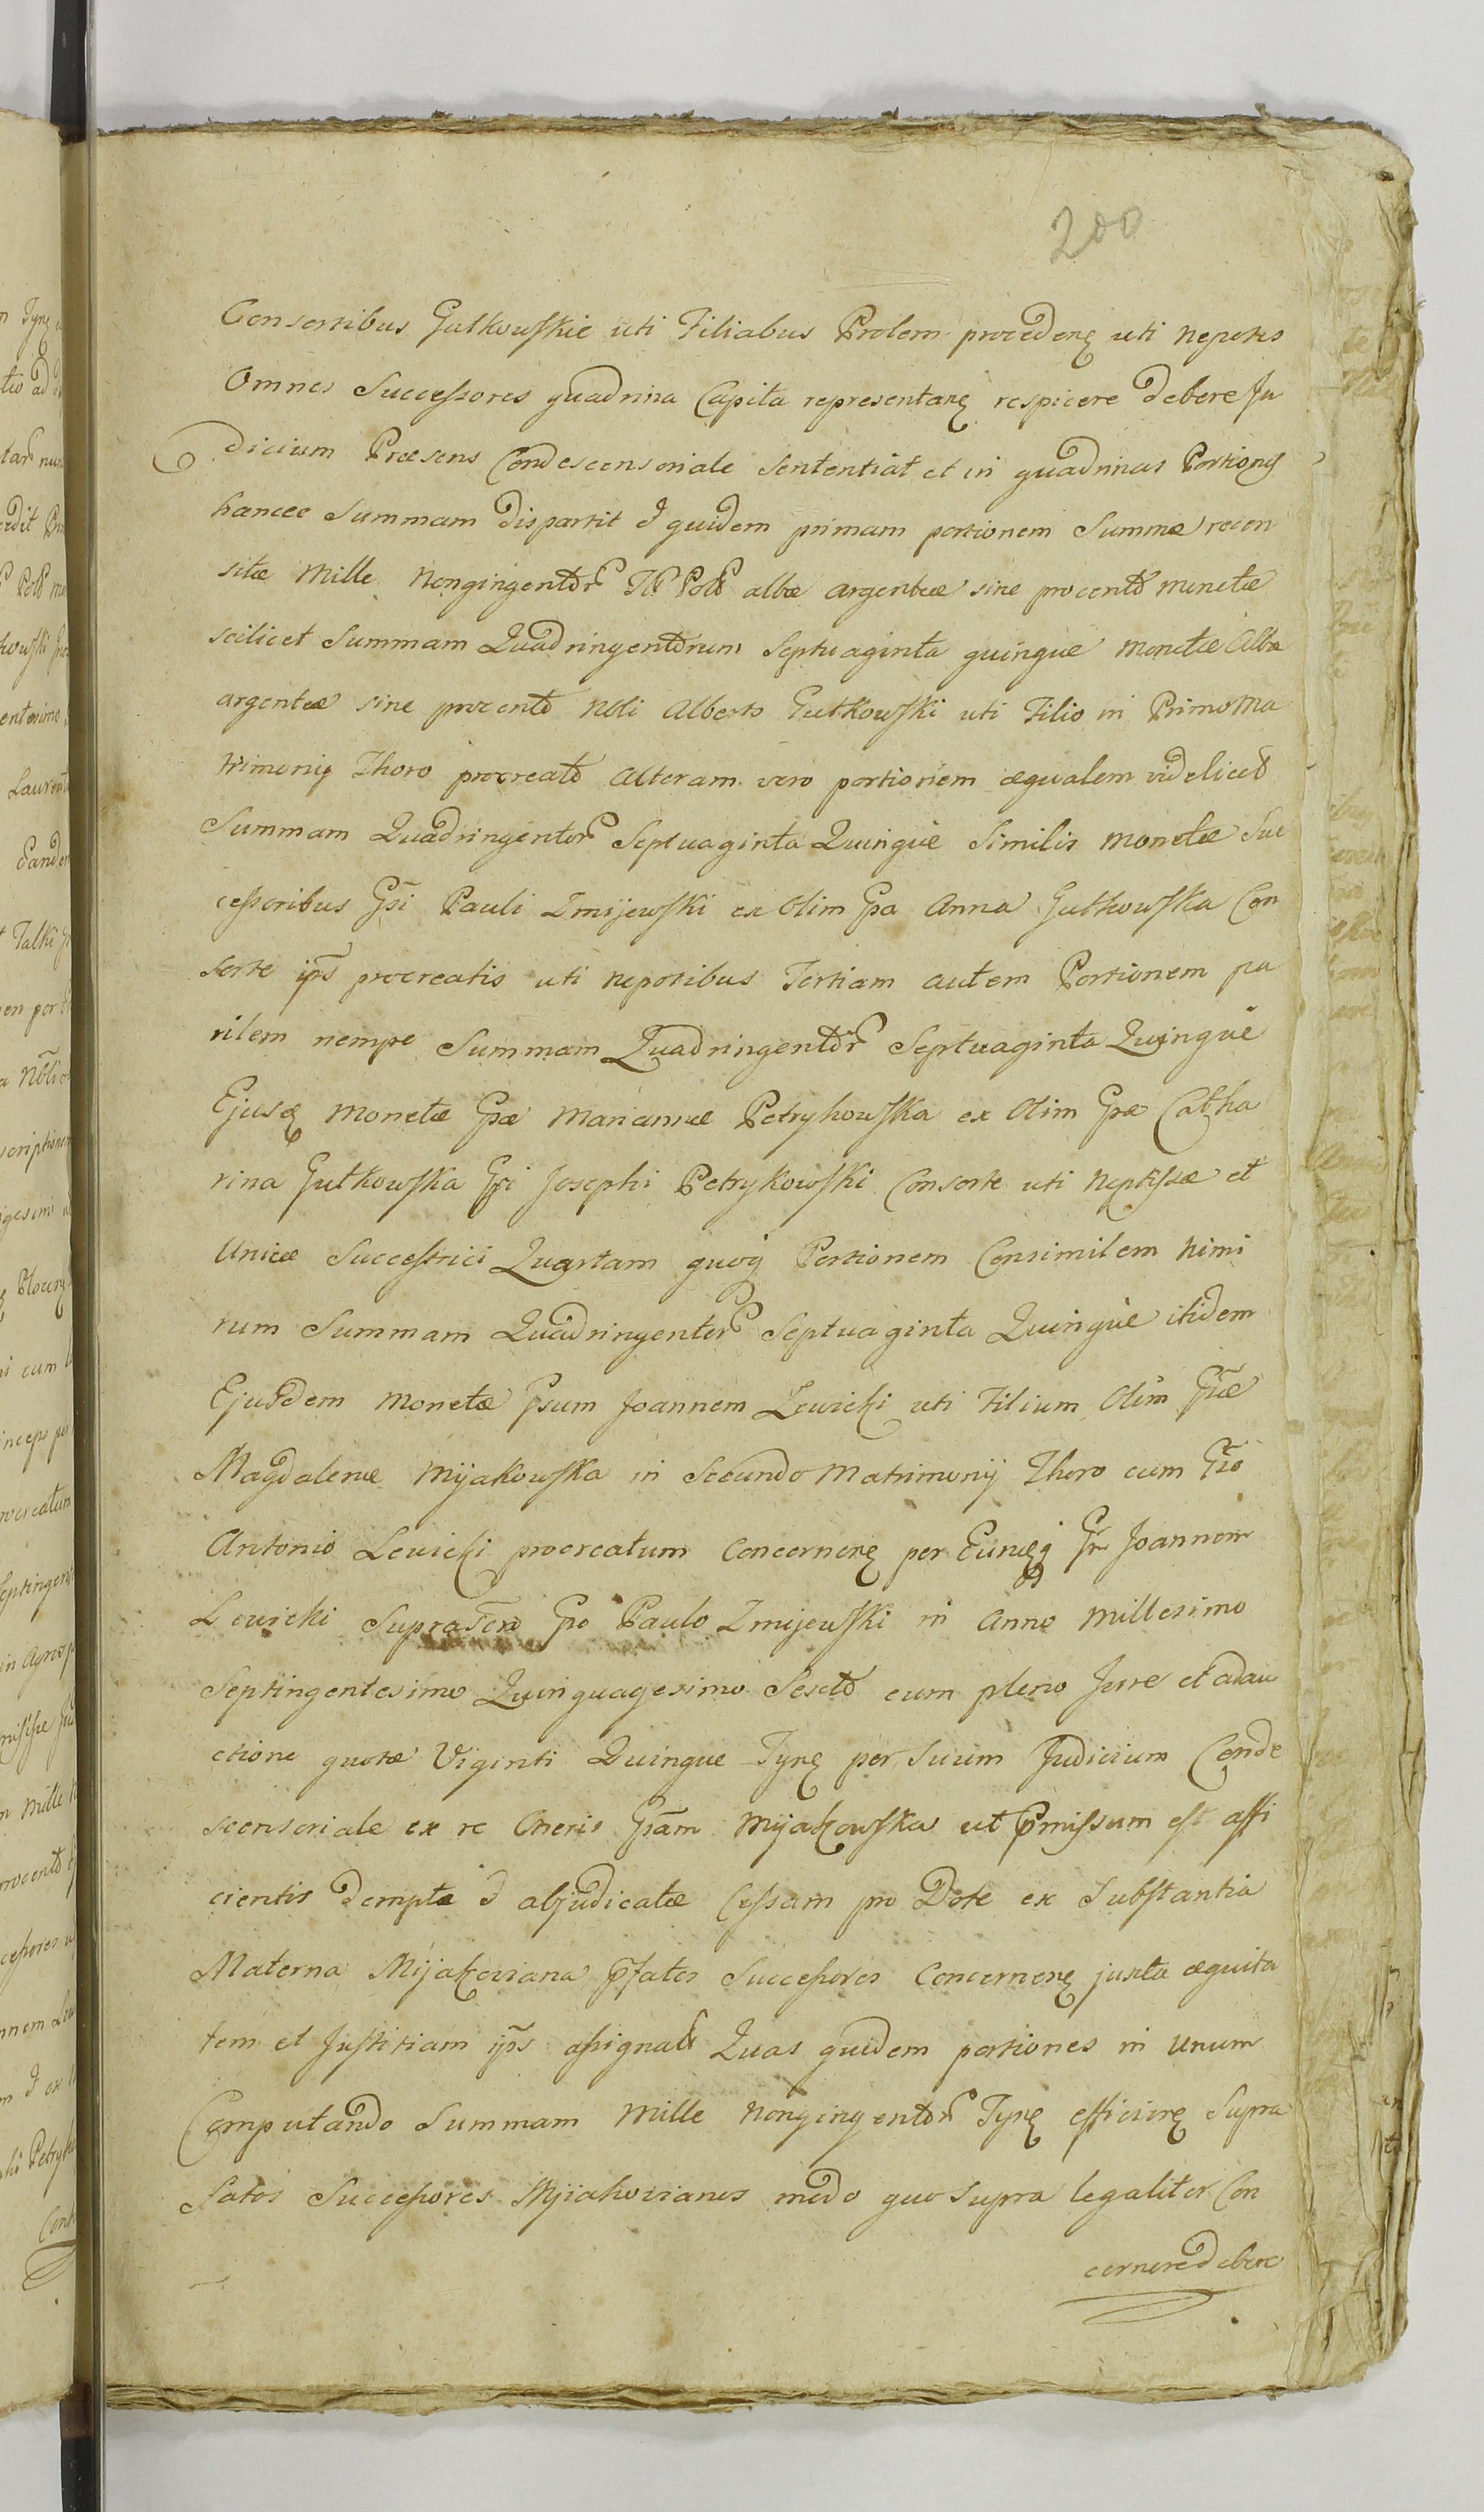 200
Consortibus Gutkowskie uti Filiabus Prolem proceden̄ uti nepotes
Omnes Successores quadrina Capita representan̄ respicere debere Ju
dicium Præsens Condescensoriale sententiat et in quadrinas Portiones
hancce Summam dispartit & quidem primam portionem Summæ recen
sitæ Mille Nongingentor̄ Fl Pol albæ argenteæ sine procento monetæ
scilicet Summam Quadringentorum Septuaginta quinque monetæ Albæ
argenteæ sine procento Nbli Alberto Gutkowski uti Filio in Primo Ma
trimonij Thoro procreato Alteram vero portionem æqualem videlicet
Summam Quadringentor̄ Septuaginta Quinque Similis monetæ Suc
cessoribus Gsi Pauli Zmijewski ex Olim Gsa Anna Gutkowska Con
sorte ips̄ procreatis uti nepotibus Tertiam autem Portionem pa
rilem nempe Summam Quadringentor̄ Septuaginta Quinque
Ejusq̨ monetæ Gsæ Mariannæ Petrykowska ex Olim Gsæ Catha
rina Gutkowska Gsi Josephi Petrykowski Consorte uti neptissæ et
Unicæ Successtrici Quartam quoq̨ Portionem Consimilem nimi
rum Summam Quadringentor̄ Septuaginta Quinque itidem
Ejusdem monetæ Gsum Joannem Lewicki uti Filium Olim Gsæ
Magdalenæ Mijakowska in Secundo Matrimonij Thoro cum Gso
Antonio Lewicki procreatum Concernen̄ per Eund̨q̨ Gsm Joannem
Lewicki Suprascro Gso Paulo Zmijewski in Anno Millesimo
Septingentesimo Quinquagesimo Sexto cum pleno Jure et adau
ctione quotæ Viginti Quinque Tynf̄ per Suum Judicium Conde
scensoriale ex re Oneris Gsam Mijakowska ut p̄missum est affi
cientis demptæ & abjudicatæ Cessam pro Dote ex Substantia
Materna Mijakoviana p̄fatos Successores Concernen̄ juxta æquita
tem et Justitiam ips̄ assignat Quas quidem portiones in unum
Computando Summam Mille Nongingentor̄ Tynf̄ efficien̄ Supra
fatos Successores Mijakovianos modo quo Supra legaliter Con
cernere debere